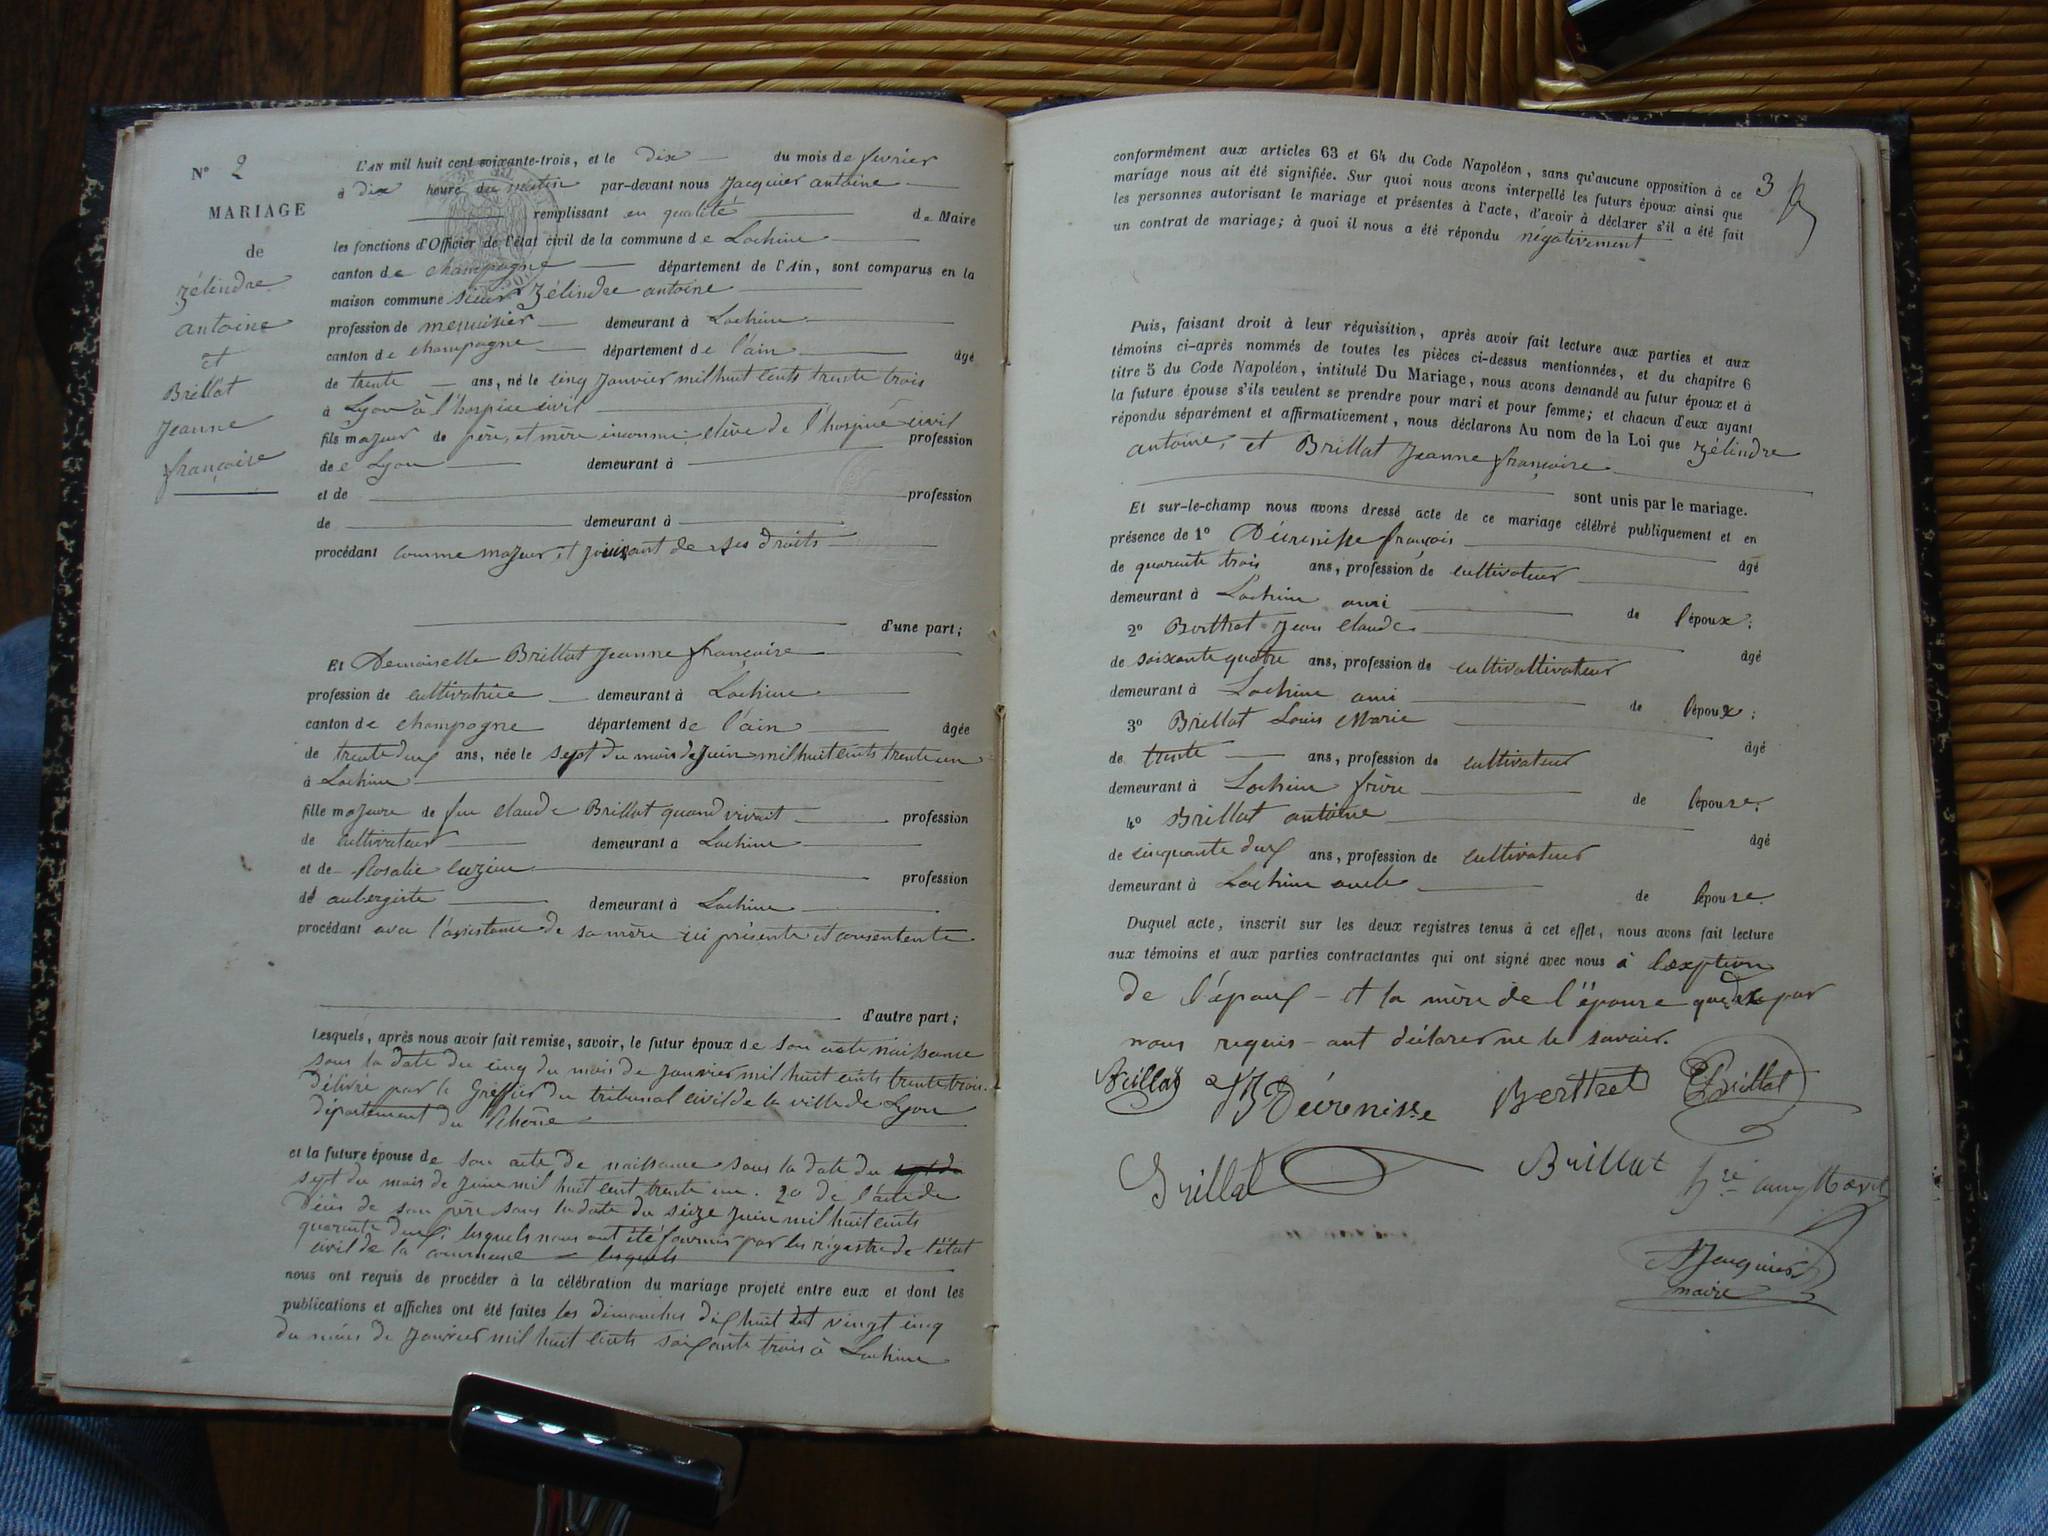 N° 2
MARIAGE
de
zélindre
antoine
et
Brillat
jeanne
françoise
L'AN mil huit cent soixante-trois, et le dix du mois de fevrier
à dix heure du matin par-devant nous Jacquier antoine
remplissant en qualité de Maire
les fonctions d'Officier de l'état civil de la commune de Lochieu
canton de champagne département de l'Ain, sont comparus en la
maison commune sieur Zélindre antoine
profession de menuisier demeurant à Lochieu
canton de champagne département de l'ain âgé
de trente ans, né le cinq janvier mil huit cents trente trois
à Lyon à l'hospice civil
fils majeur de père, et mère inconnu élève de l'hospice civil profession
de Lyon demeurant à
et de profession
de demeurant à
procédant comme majeur, et jouissant de ses droits
d'une part;
Et Demoiselle Brillat jeanne françoise
profession de cultivatrice demeurant à Lochieu
canton de champagne département de l'ain âgée
de trente deux ans, née le sept du mois de juin mil huit cents trente un
à Lochieu
fille majeure de feu claude Brillat quand vivait profession
de cultivateur demeurant à Lochieu
et de Rosalie cuzin profession
de aubergiste demeurant à Lochieu
procédant avec l'assistance de sa mère ici présente et consentente
d'autre part;
Lesquels, après nous avoir fait remise, savoir, le futur époux de son acte naissance
sous la date du cinq du mois de janvier mil huit cents trente trois
délivré par le Greffier du tribunal civil de la ville de Lyon
département du Rhône
et la future épouse de son acte de naissance sous la date du
sept du mois de juin mil huit cent trente un. 2° de l'acte de
décès de son père sous la date du seize juin mil huit cents
quarante deux, lesquels nous ont été fournis par les régistre de l'état
civil de la commune lesquels
nous ont requis de procéder à la célébration du mariage projeté entre eux et dont les
publications et affiches ont été faites les dimanches dix huit et vingt cinq
du mois de Janvier mil huit cents soixante trois à Lochieu
3
conformément aux articles 63 et 64 du Code Napoléon, sans qu'aucune opposition à ce
mariage nous ait été signifiée. Sur quoi nous avons interpellé les futurs époux ainsi que
les personnes autorisant le mariage et présentes à l'acte, d'avoir à déclarer s'il a été fait
un contrat de mariage; à quoi il nous a été répondu négativement
Puis, faisant droit à leur réquisition, après avoir fait lecture aux parties et aux
témoins ci-après nommés de toutes les pièces ci-dessus mentionnées, et du chapitre 6
titre 5 du Code Napoléon, intitulé Du Mariage, nous avons demandé au futur époux et à
la future épouse s'ils veulent se prendre pour mari et pour femme; et chacun d'eux ayant
répondu séparément et affirmativement, nous déclarons Au nom de la Loi que Zélindre
antoine, et Brillat Jeanne françoise
sont unis par le mariage.
Et sur-le-champ nous avons dressé acte de ce mariage célébré publiquement et en
présence de 1° Décrenisse françois âgé
de quarante trois ans, profession de cultivateur
demeurant à Lochieu ami de l'époux;
2° Berthet Jean claude âgé
de soixante quatre ans, profession de cultivattivateur
demeurant à Lochieu ami de l'époux;
3° Brillat Louis Marie âgé
de trente ans, profession de cultivateur
demeurant à Lochieu frère de lépouse;
4° Brillat antoine âgé
de cinquante deux ans, profession de cultivateur
demeurant à Lochieu oncle de lépouse
Duquel acte, inscrit sur les deux registres tenus à cet effet, nous avons fait lecture
aux témoins et aux parties contractantes qui ont signé avec nous à l'exption
de l'époux et la mère de l'épouse par
nous requis ont déclarer ne le savoir.
Brillat Décrenisse Berthet Brillat
Brillat Brillat
Jacquier
maire